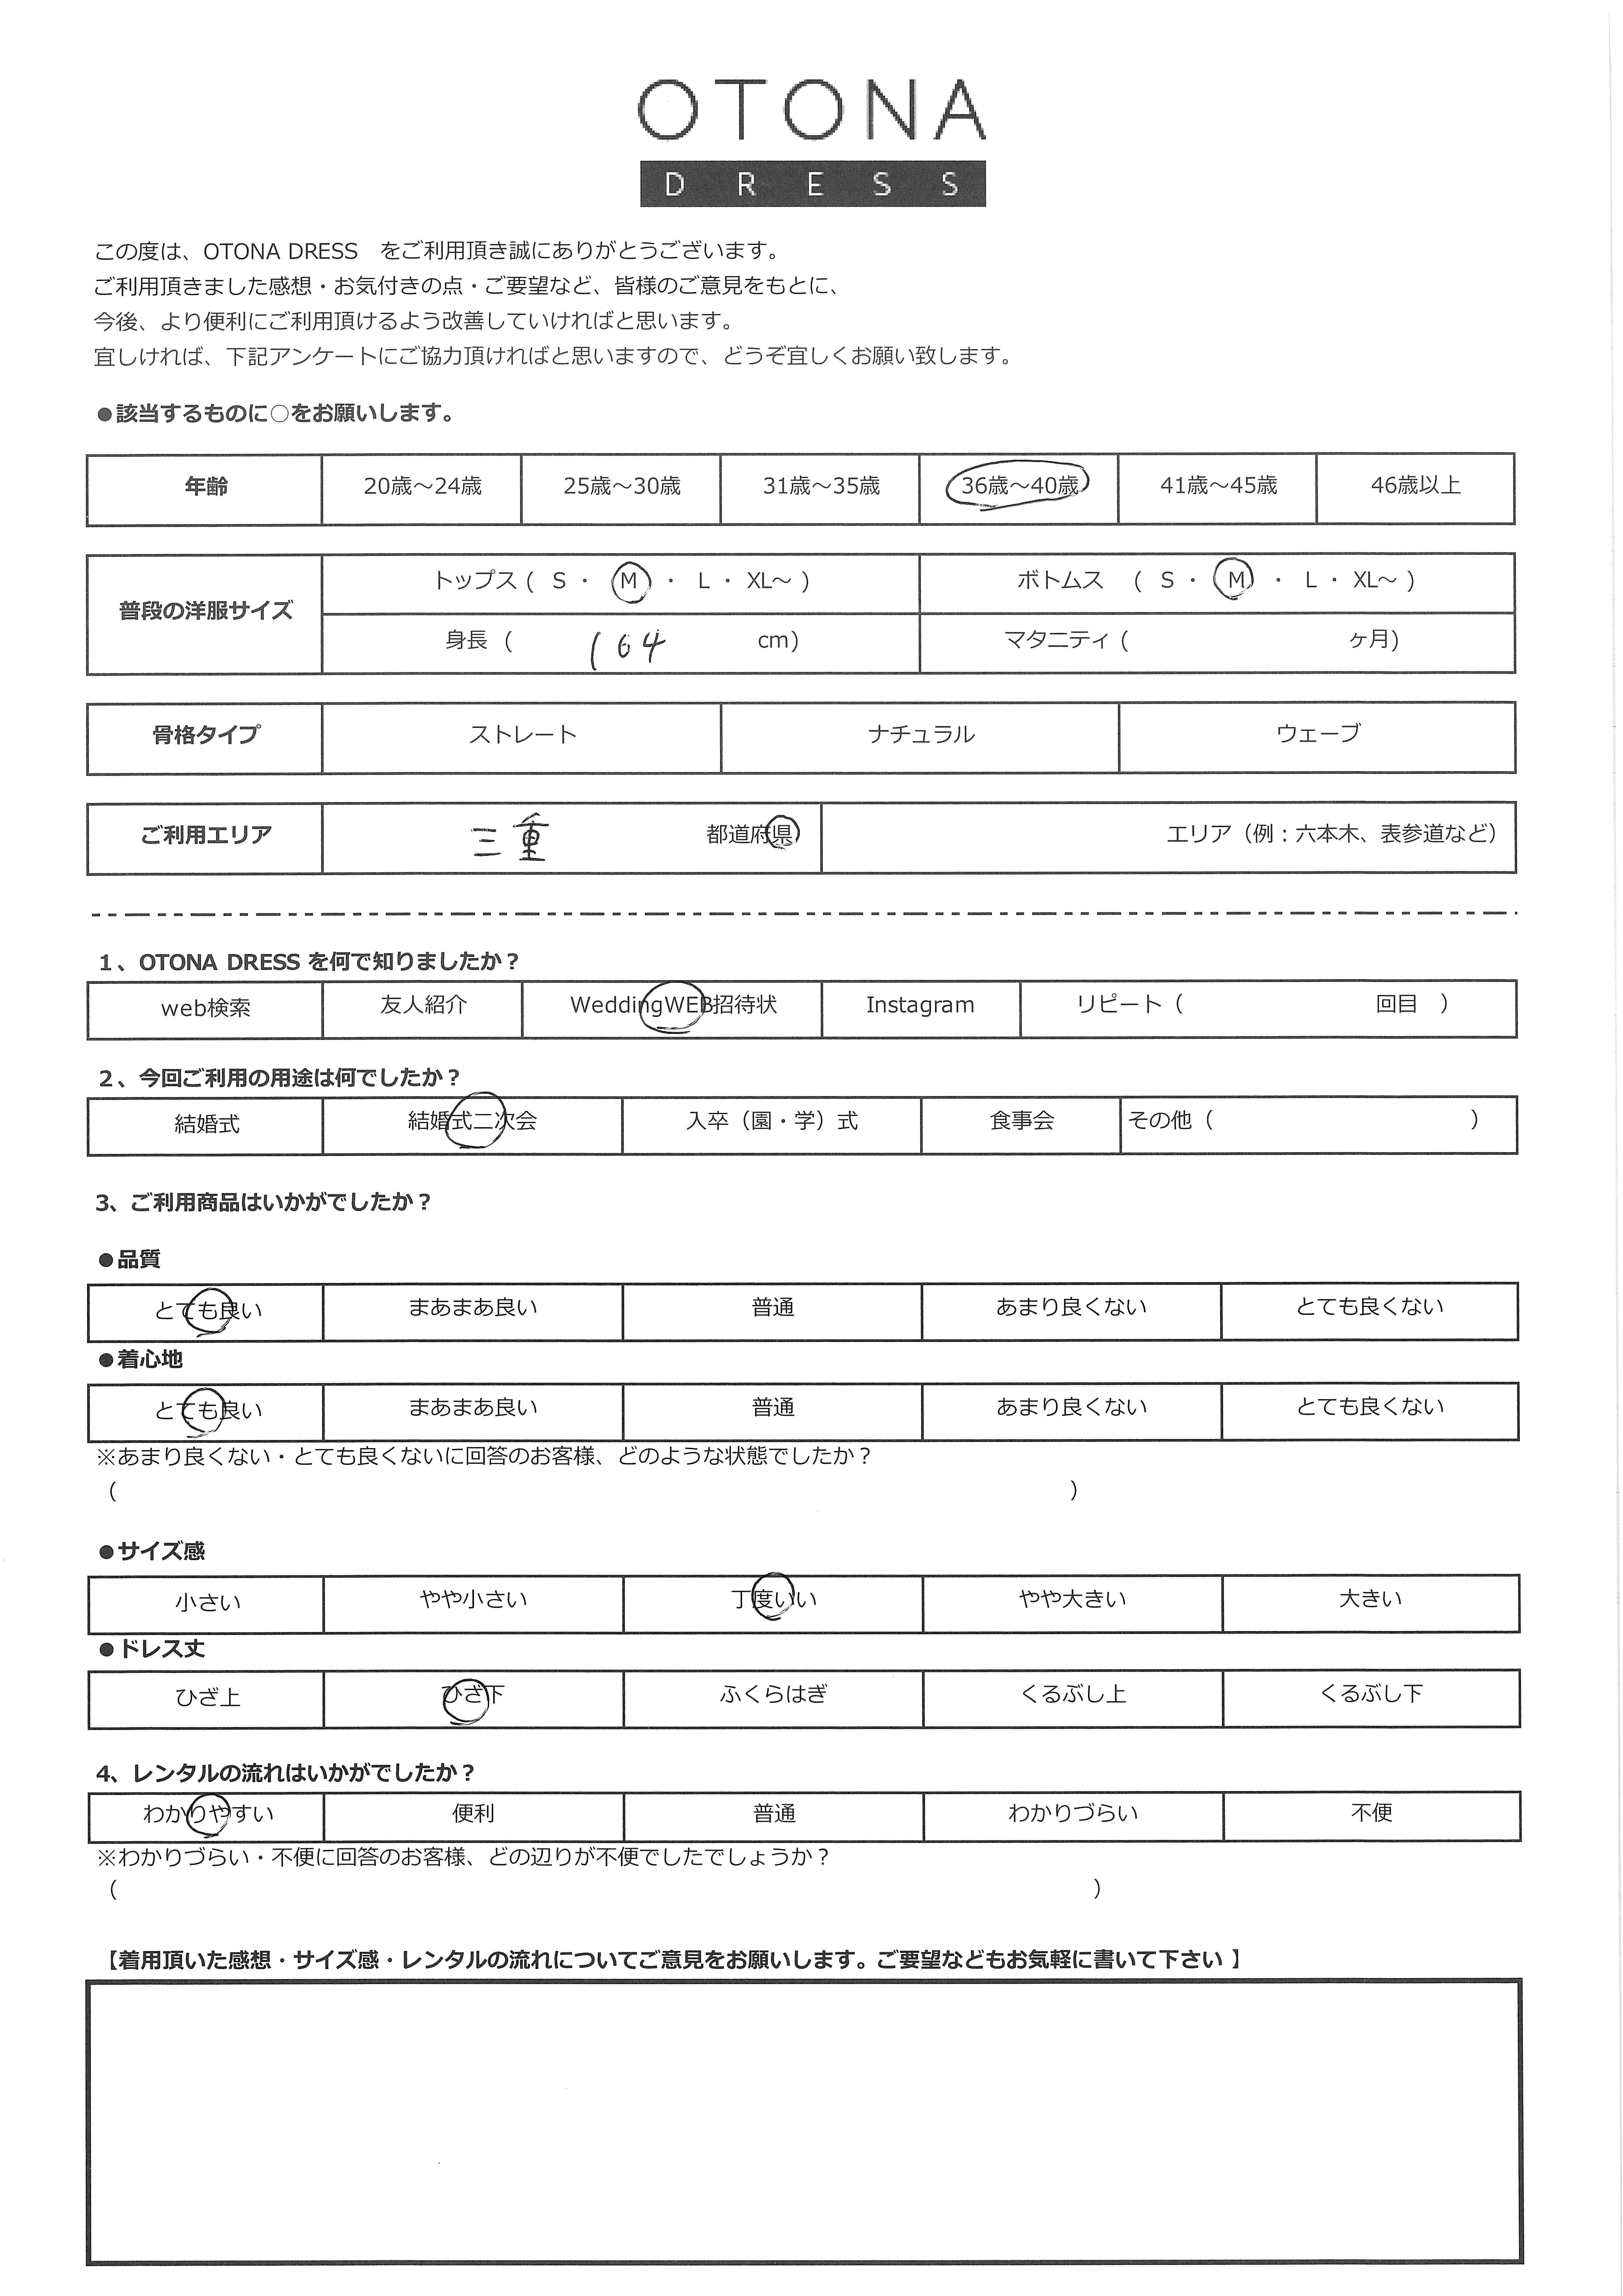 OTONA
DRESS
この度は、OTONA DRESS　をご利用頂き誠にありがとうございます。
ご利用頂きました感想・お気付きの点・ご要望など、皆様のご意見をもとに、
今後、より便利にご利用頂けるよう改善していければと思います。
宜しければ、下記アンケートにご協力頂ければと思いますので、どうぞ宜しくお願い致します。
●該当するものに○をお願いします。
年齢 20歳～24歳 25歳～30歳 31歳～35歳 36歳～40歳 41歳～45歳 46歳以上
普段の洋服サイズ トップス ( S ・ M ・ L ・ XL～ ) ボトムス ( S ・ M ・ L ・ XL～ )
身長 ( 164 cm) マタニティ ( ヶ月)
骨格タイプ ストレート ナチュラル ウェーブ
ご利用エリア 三重 都道府県 エリア（例：六本木、表参道など）
1、OTONA DRESS を何で知りましたか？
web検索 友人紹介 WeddingWEB招待状 Instagram リピート（ 回目 ）
2、今回ご利用の用途は何でしたか？
結婚式 結婚式二次会 入卒（園・学）式 食事会 その他（ ）
3、ご利用商品はいかがでしたか？
●品質
とても良い まあまあ良い 普通 あまり良くない とても良くない
●着心地
とても良い まあまあ良い 普通 あまり良くない とても良くない
※あまり良くない・とても良くないに回答のお客様、どのような状態でしたか？
（ ）
●サイズ感
小さい やや小さい 丁度いい やや大きい 大きい
●ドレス丈
ひざ上 ひざ下 ふくらはぎ くるぶし上 くるぶし下
4、レンタルの流れはいかがでしたか？
わかりやすい 便利 普通 わかりづらい 不便
※わかりづらい・不便に回答のお客様、どの辺りが不便でしたでしょうか？
（ ）
【着用頂いた感想・サイズ感・レンタルの流れについてご意見をお願いします。ご要望などもお気軽に書いて下さい 】